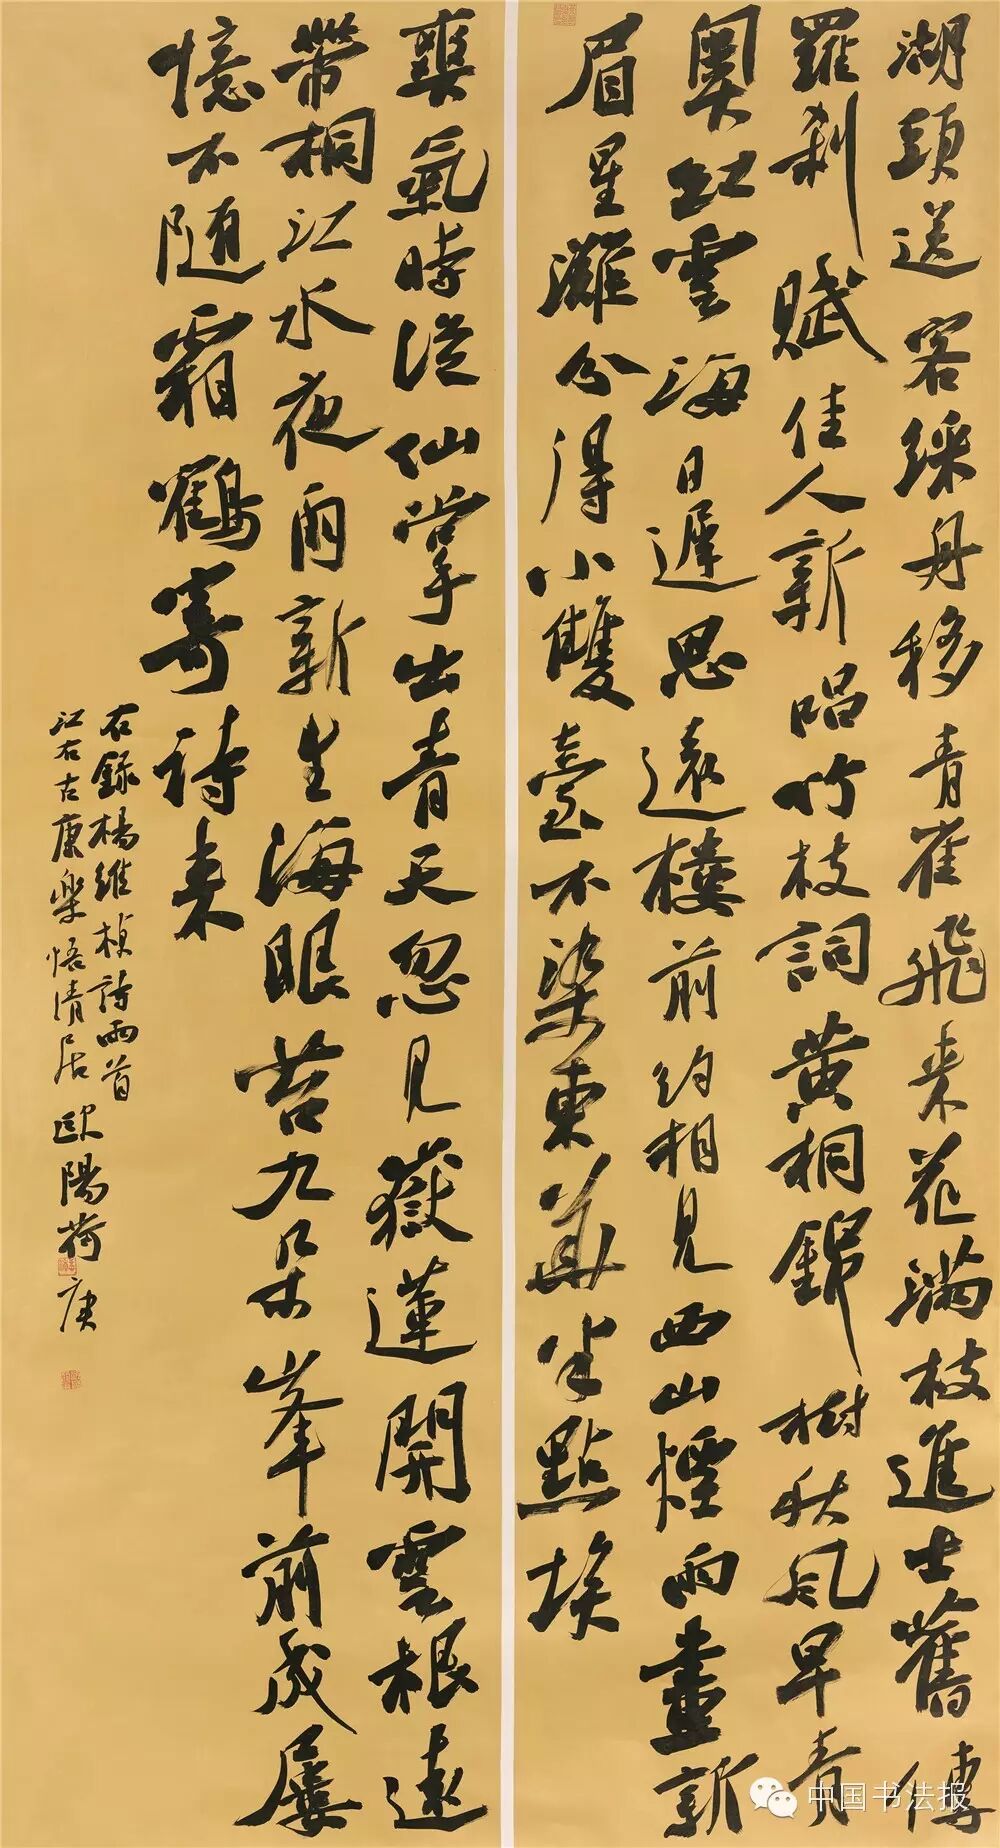 湖頭送客綵舟移青雀飛来花滿枝進士舊傳
羅刹賦佳人新唱竹枝詞黄桐錦樹秋風早青
奥紅雲海日遲思遠樓前約相見西山煙雨畫新
眉星灘分得小雙臺不染東華半點埃
爽氣時從仙掌出青天忽見嶽蓮開雲根遠
帶桐江水夜雨新生海眼苔九朵峯前成屢
憶不随霜鶴寄詩来
右録楊維楨詩兩首
江右古康樂悟清居歐陽荷庚
中国书法报